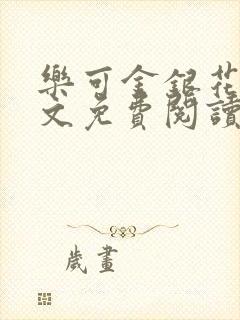 樂可金銀花
文免費閱讀
歲畫